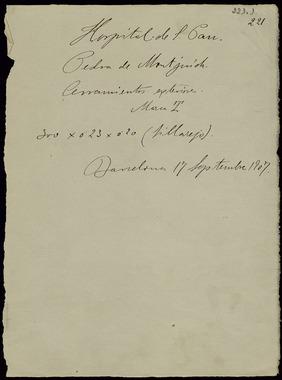 223-3
221
Hospital de S. Pau.
Pedra de Montjuich.
Cerramientos exteriores.
Marca T
300 x 023 x 020 (Villarejo).
Barcelona 17 Septembre 1907.